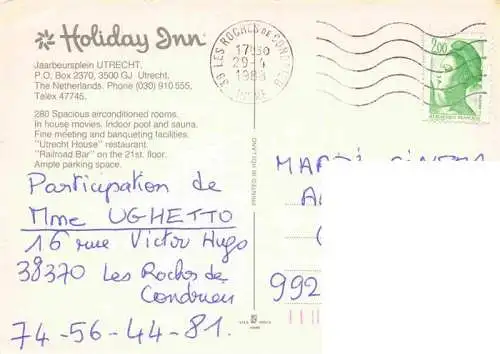 Holiday Inn
Jaarbeursplein UTRECHT.
P.O. Box 2370, 3500 GJ Utrecht.
The Netherlands. Phone (030) 910 555,
Telex 47745.
280 Spacious airconditioned rooms.
In house movies. Indoor pool and sauna.
Fine meeting and banqueting facilities.
"Utrecht House" restaurant.
"Railroad Bar" on the 21st. floor.
Ample parking space.
38 LES ROCHES DE CONDRIEU
17H30
29-4
1988
ISERE
2,00
PRINTED IN HOLLAND
Participation de
Mme UGHETTO
16 rue Victor Hugo
38370 Les Roches de
Condrieu
74-56-44-81.
992